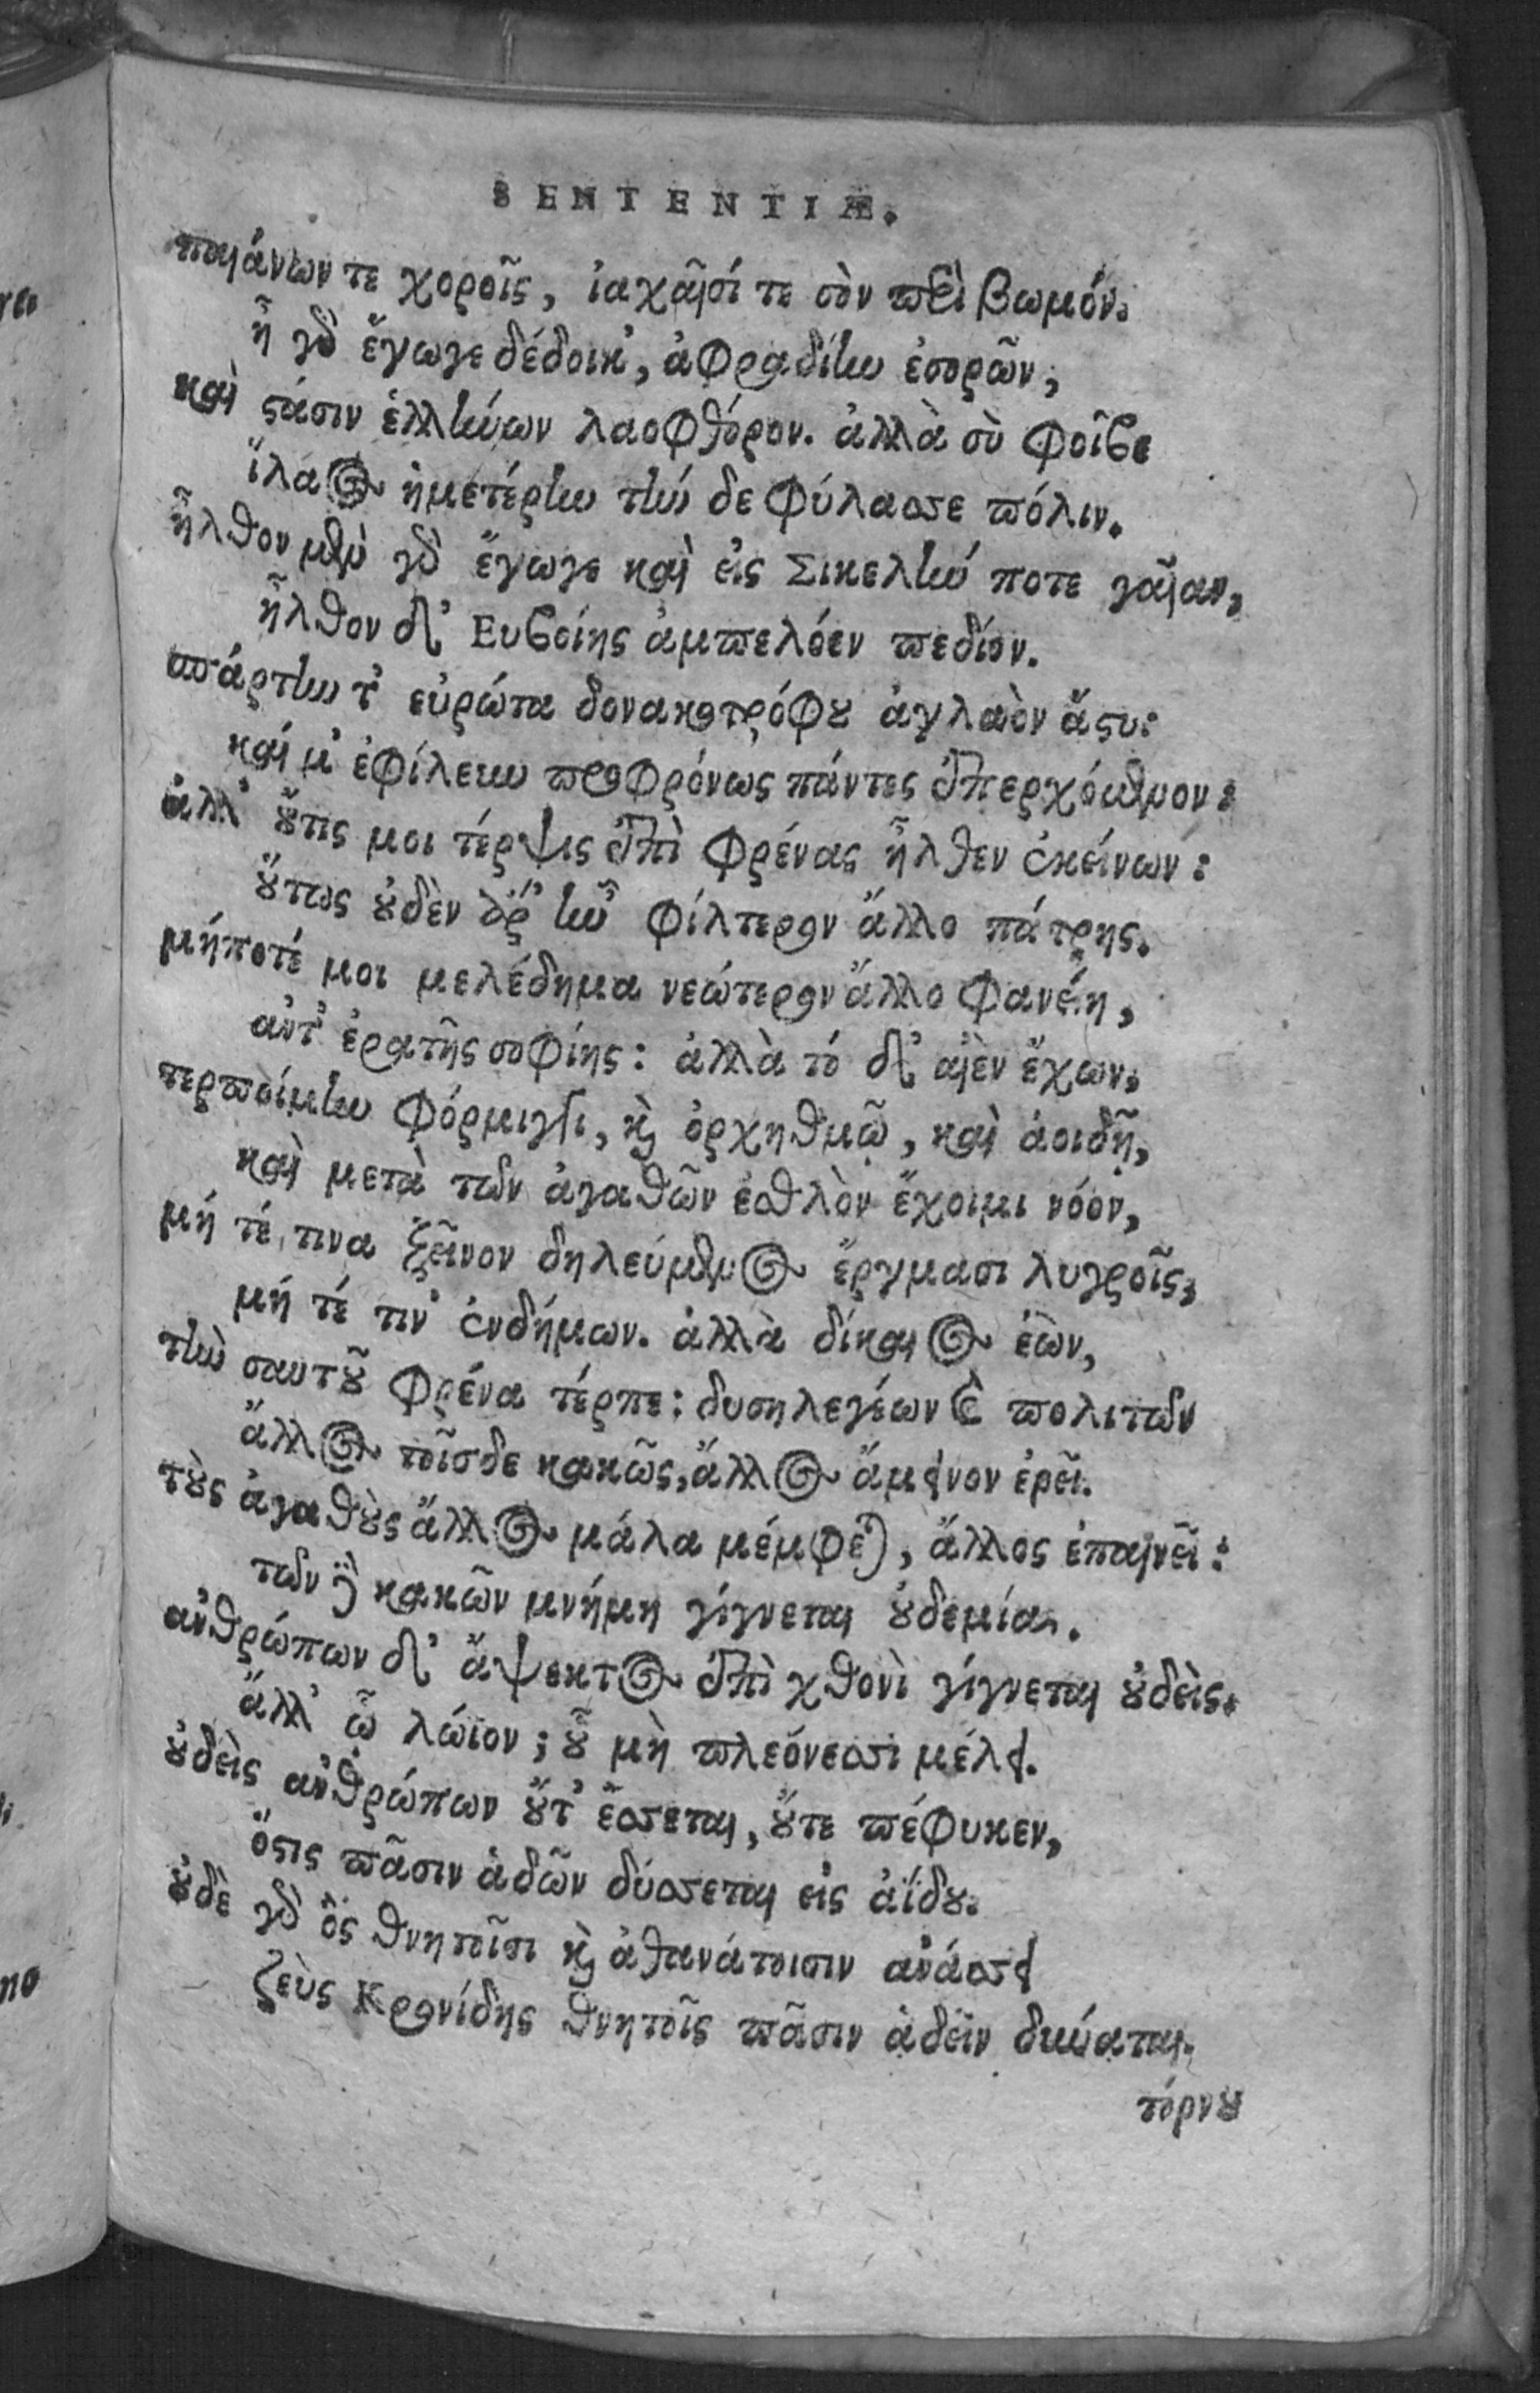 SENTENTIÆ.
παιάνων τε χοροῖς, ἰαχαῖσί τε σὸν περὶ βωμόν.
ἦ γὰρ ἔγωγε δέδοικ', ἀφραδίην ἐσορῶν,
καὶ στάσιν ἑλλήνων λαοφθόρον. ἀλλὰ σὺ φοῖβε
ἵλαος ἡμετέρην τήν δε φύλασσε πόλιν.
ἦλθον μὲν γὰρ ἔγωγε καὶ εἰς Σικελήν ποτε γαῖαν,
ἦλθον δ' Ευβοίης ἀμπελόεν πεδίον.
σπάρτην τ' εὐρώτα δονακοτρόφου ἀγλαὸν ἄστυ:
καί μ' ἐφίλευν προφρόνως πάντες ἐπερχόμενον:
ἀλλ' οὔτις μοι τέρψις ἐπὶ φρένας ἦλθεν ἐκείνων:
οὕτως οὐδὲν ἄρ' ἦν φίλτερον ἄλλο πάτρης.
μήποτέ μοι μελέδημα νεώτερον ἄλλο φανείη,
αὐτ' ἐρατῆς σοφίης: ἀλλὰ τό δ' αἰὲν ἔχων,
τερποίμην φόρμιγγι, καὶ ὀρχηθμῷ, καὶ ἀοιδῇ,
καὶ μετὰ τῶν ἀγαθῶν ἐσθλὸν ἔχοιμι νόον,
μή τέ τινα ξεῖνον δηλεύμενος ἔργμασι λυγροῖς,
μή τέ τιν' ἐνδήμων. ἀλλὰ δίκαιος ἐὼν,
τὴν σαυτοῦ φρένα τέρπε: δυσηλεγέων δὲ πολιτῶν
ἄλλος τοῖσδε κακῶς, ἄλλος ἄμεινον ἐρεῖ.
τοὺς ἀγαθοὺς ἄλλος μάλα μέμφεται, ἄλλος ἐπαινεῖ:
τῶν δὲ κακῶν μνήμη γίγνεται οὐδεμία.
ἀνθρώπων δ' ἄψεκτος ἐπὶ χθονὶ γίγνεται οὐδεὶς.
ἄλλ' ᾧ λώϊον; οὗ μὴ πλεόνεσσι μέλει.
οὐδεὶς ἀνθρώπων οὔτ' ἔσσεται, οὔτε πέφυκεν,
ὅστις πᾶσιν ἁδῶν δύσσεται εἰς ἀΐδου.
οὐδὲ γὰρ ὃς θνητοῖσι καὶ ἀθανάτοισιν ἀνάσσει
ζεὺς Κρονίδης θνητοῖς πᾶσιν ἁδεῖν δύναται.
τόρνου